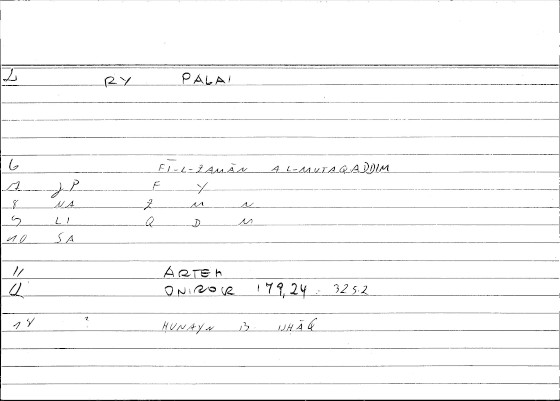 RY PALAI
6 FĪ-L-ZAMĀN AL-MUTAQADDIM
JP F Y
8 NA Z M N
9 LI Q D M
10 SA
11 ARTEM
ONIROCR 179,24 : 325.2
14 ? HUNAYN B ISHĀQ